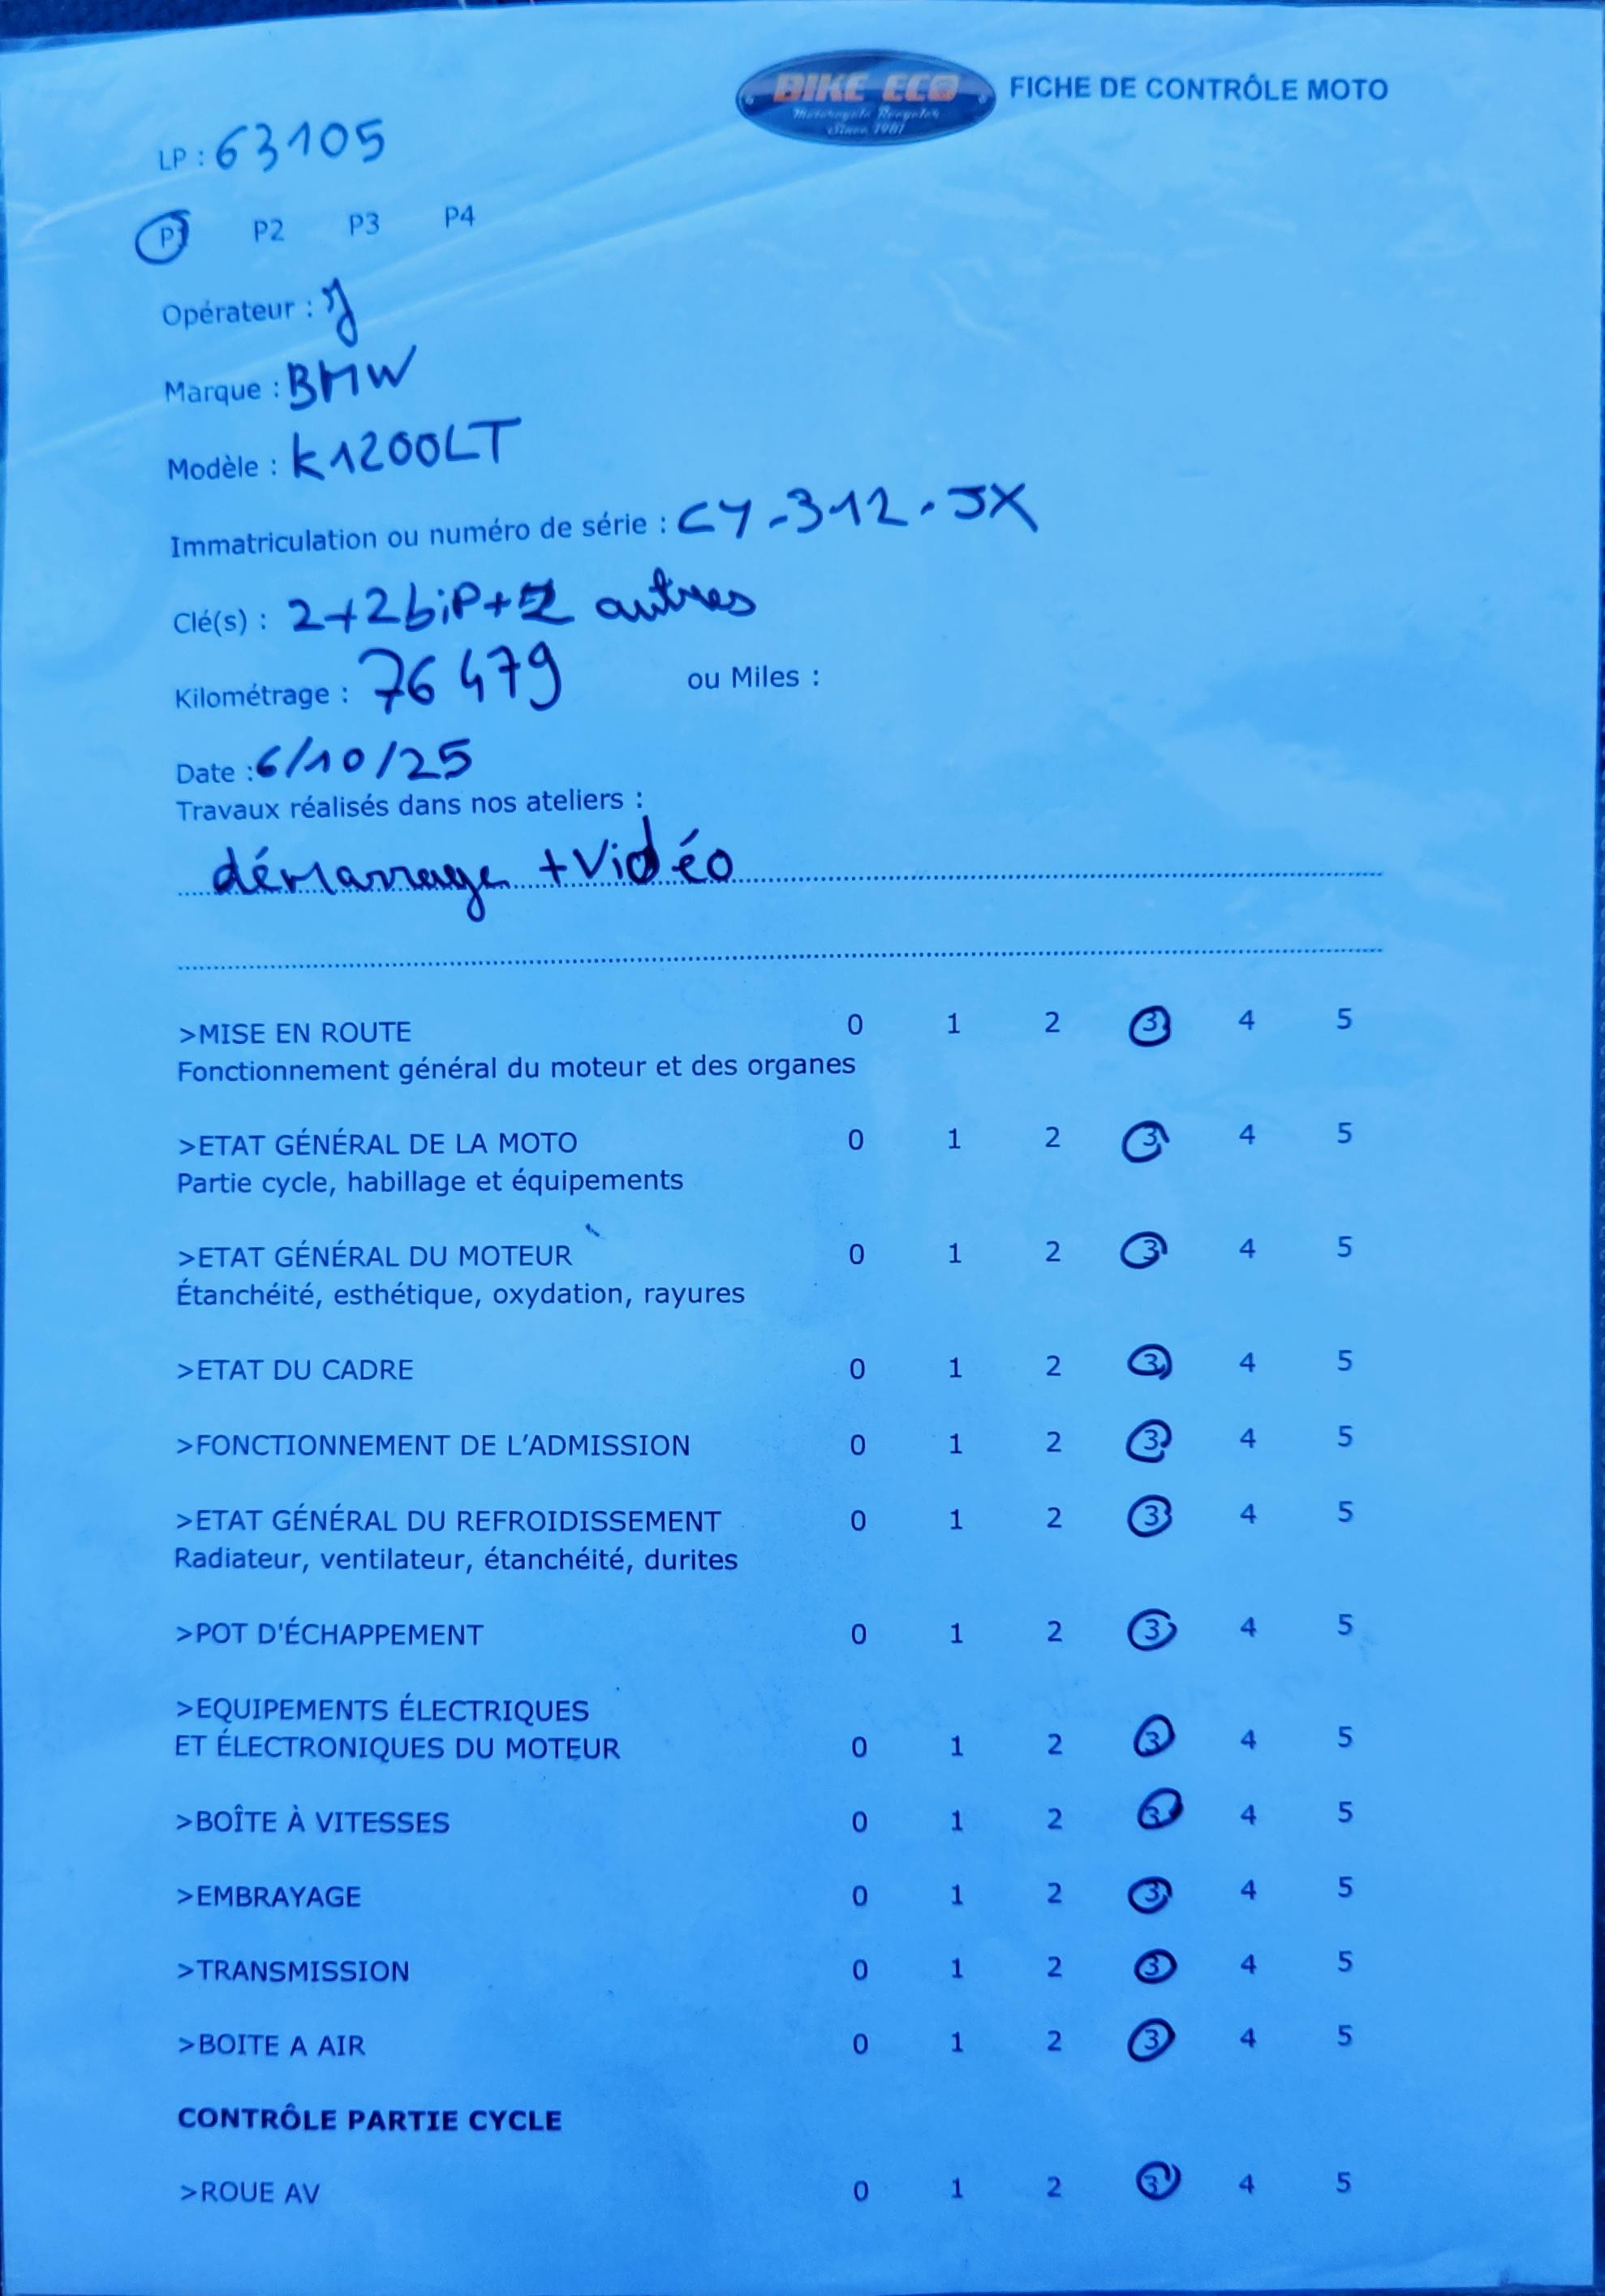 BIKE ECO
Motorcycle Recycler
Since 1987
FICHE DE CONTRÔLE MOTO
LP : 63105
P1 P2 P3 P4
Opérateur :
Marque : BMW
Modèle : K1200LT
Immatriculation ou numéro de série : CY-312-JX
Clé(s) : 2+2biP+2 autres
Kilométrage : 76479 ou Miles :
Date : 6/10/25
Travaux réalisés dans nos ateliers :
démarrage + Vidéo
>MISE EN ROUTE 0 1 2 3 4 5
Fonctionnement général du moteur et des organes
>ETAT GÉNÉRAL DE LA MOTO 0 1 2 3 4 5
Partie cycle, habillage et équipements
>ETAT GÉNÉRAL DU MOTEUR 0 1 2 3 4 5
Étanchéité, esthétique, oxydation, rayures
>ETAT DU CADRE 0 1 2 3 4 5
>FONCTIONNEMENT DE L'ADMISSION 0 1 2 3 4 5
>ETAT GÉNÉRAL DU REFROIDISSEMENT 0 1 2 3 4 5
Radiateur, ventilateur, étanchéité, durites
>POT D'ÉCHAPPEMENT 0 1 2 3 4 5
>EQUIPEMENTS ÉLECTRIQUES
ET ÉLECTRONIQUES DU MOTEUR 0 1 2 3 4 5
>BOÎTE À VITESSES 0 1 2 3 4 5
>EMBRAYAGE 0 1 2 3 4 5
>TRANSMISSION 0 1 2 3 4 5
>BOITE A AIR 0 1 2 3 4 5
CONTRÔLE PARTIE CYCLE
>ROUE AV 0 1 2 3 4 5